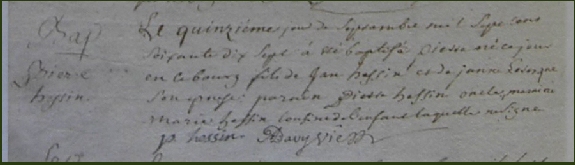 Bap
Pierre
hessin.
Le quinzième jour de Septembre mil Sept cens
soixante dix sept à été baptisé pierre né ce jour
en ce bourg fils de Jean hessin et de janne
son epouse: parain pierre hessin oncle, maraine
marie hessin cousine de l'enfant laquelle ne signe
p hessin Davy Vic